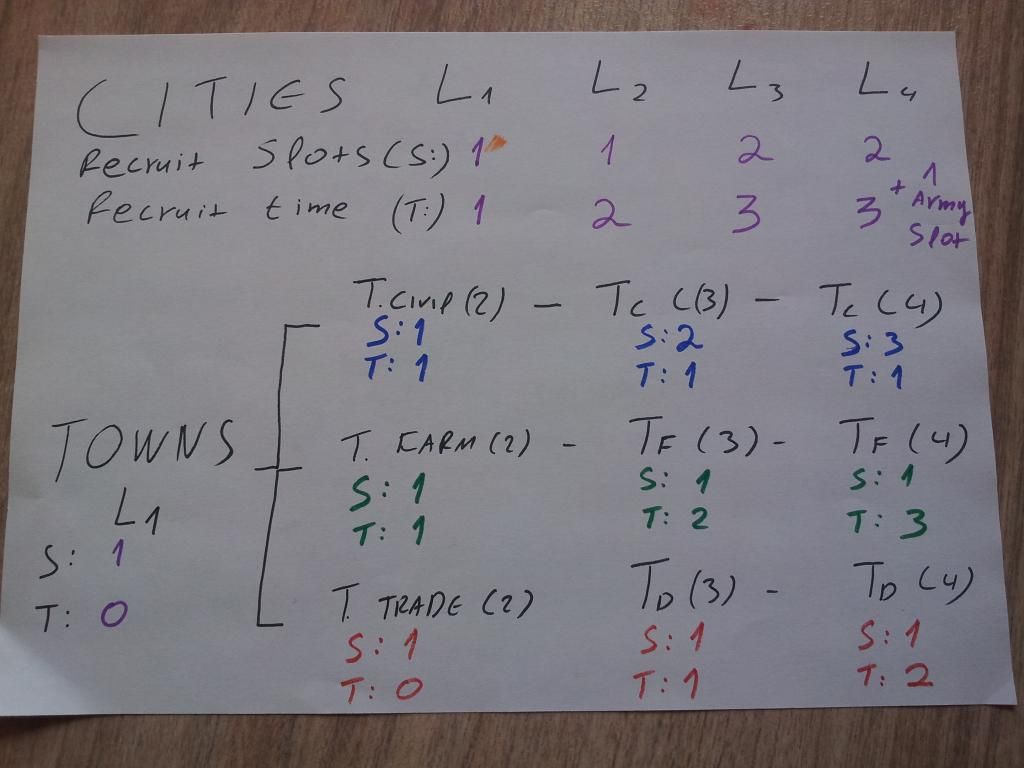 CITIES L1 L2 L3 L4
Recruit Slots (S:) 1 1 2 2
Recruit time (T:) 1 2 3 3 + 1 Army Slot
T. Civil (2) - TC (3) - TC (4)
S: 1 S: 2 S: 3
T: 1 T: 1 T: 1
TOWNS
L1
S: 1
T: 0
T. FARM (2) - TF (3) - TF (4)
S: 1 S: 1 S: 1
T: 1 T: 2 T: 3
T. TRADE (2) TD (3) - TD (4)
S: 1 S: 1 S: 1
T: 0 T: 1 T: 2